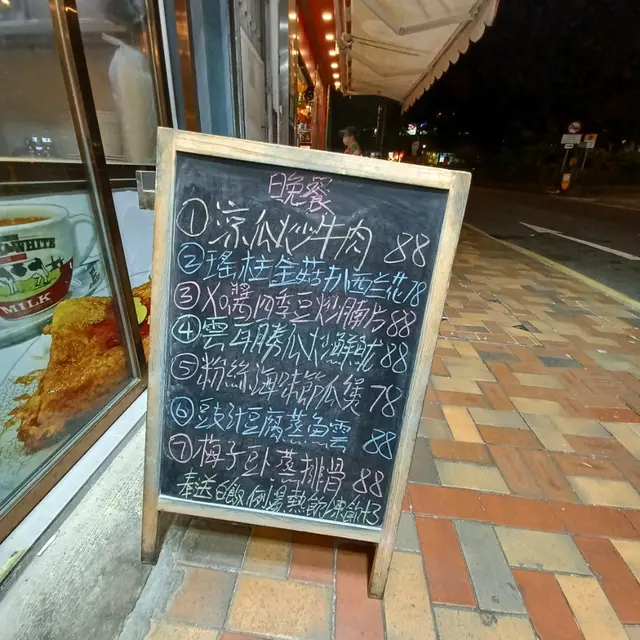 日晚餐
① 凉瓜炒牛肉 88
② 瑤柱金菇扒西兰花 78
③ XO醬四季豆炒腩片 88
④ 雲耳勝瓜炒鮮魷 88
⑤ 粉絲海味節瓜煲 78
⑥ 豉汁豆腐蒸魚雲 88
⑦ 梅子卜蒸排骨 88
奉送白飯例湯熱飲凍飲+3
WHITE
MILK